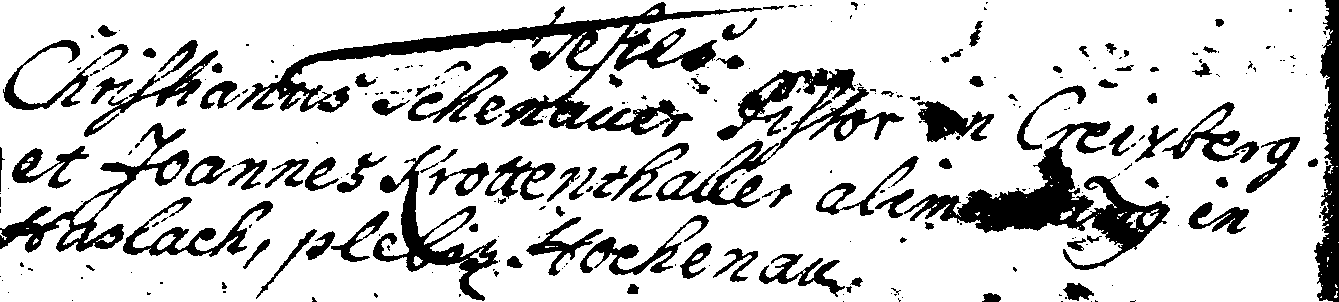 Testes.
Christianus Schenauer Pistor in Creixberg.
et Joannes Krottenthaller in
Haslach, plebis Hochenau.